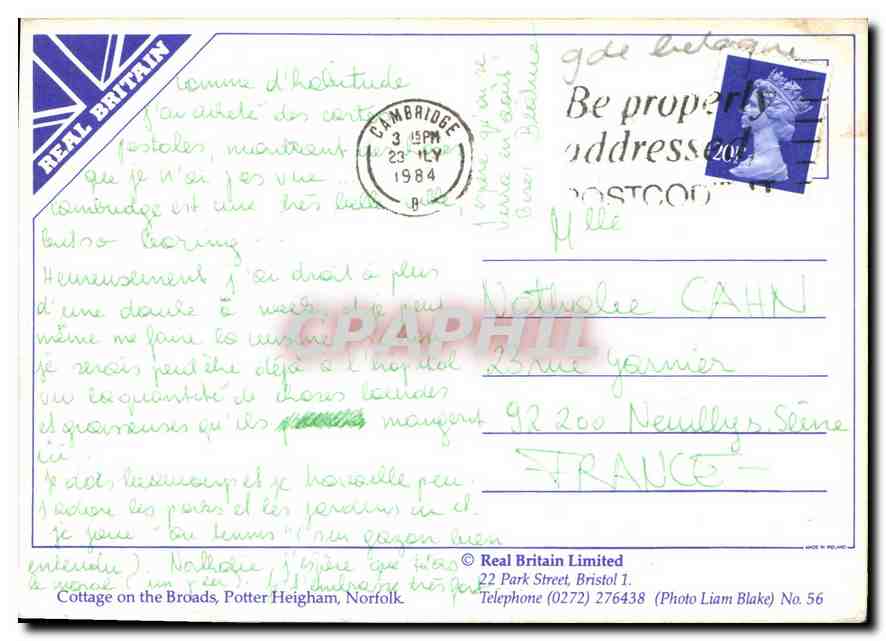 REAL BRITAIN
comme d'habitude
j'ai acheté des cartes
postales, montrant
que je n'ai pas vue...
Cambridge est une très belle ville,
but so boring...
Heureusement j'ai droit à plus
d'une douche à et je peux
même me faire la cuisine
je serais peut être déjà à l'hopital
vu la quantité de choses lourdes
et graisseuses qu'ils mangent
ici.
Je dors beaucoup et je travaille peu.
J'adore les parcs et les jardins ici et
je joue "au tennis" (sur gazon bien
entendu). Nathalie, j'espère que tu as
le moral (un peu). Je t'embrasse très fort
J'espère qu'on se
verra en août.
CAMBRIDGE
3 15PM
23 JLY
1984
gde bretagne
Be properly
addressed
POSTCOD
20P
Mlle
Nathalie CAHN
23 rue Garnier
92 200 Neuilly s. Seine
FRANCE -
MADE IN IRELAND
© Real Britain Limited
22 Park Street, Bristol 1.
Telephone (0272) 276438 (Photo Liam Blake) No. 56
Cottage on the Broads, Potter Heigham, Norfolk.
CPAPHIL